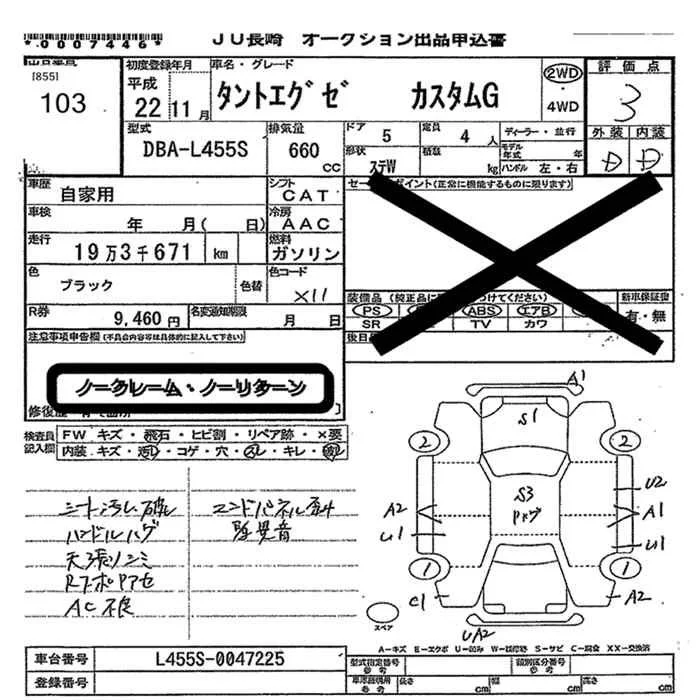 *0007446*
JU長崎 オークション出品申込書
[855]
103
初度登録年月
平成
22年11月
車名・グレード
タントエグゼ カスタムG
2WD
・
4WD
評価点
3
外装 内装
D D
型式
DBA-L455S
排気量
660
CC
ドア
5
定員
4人
形状
ステW
積載
kg
ディーラー・並行
モデル
年式 年
ハンドル 左・右
車歴
自家用
シフト
CAT
車検
年 月( 日)
冷房
AAC
走行
19万3千671 km
燃料
ガソリン
色
ブラック
色替
色コード
X11
R券
9,460円
名変通知期限
月 日
ポイント(正常に機能するものに限ります)
装備品
PS
ABS
エアB
SR
TV
カワ
新車保証書
有・無
注意事項申告欄(不具合内容等は具体的に記入して下さい)
ノークレーム・ノーリターン
検査員
記入欄
FW キズ・飛石・ヒビ割・リペア跡・×要
内装 キズ・汚レ・コゲ・穴・スレ・キレ・破レ
シート汚レ破レ
ハンドルハゲ
天張りシミ
ACB不良
エンドパネル歪み
A1
S1
2
2
S3
A2
U1
U2
A1
U1
1
1
C1
A2
UA2
スペア
A-キズ E-エクボ U-凹み W-補修跡 S-サビ C-腐食 XX-交換済
車台番号
L455S-0047225
登録番号
型式指定番号
参考
類別区分番号
参考
長さ
cm
幅
cm
高さ
cm